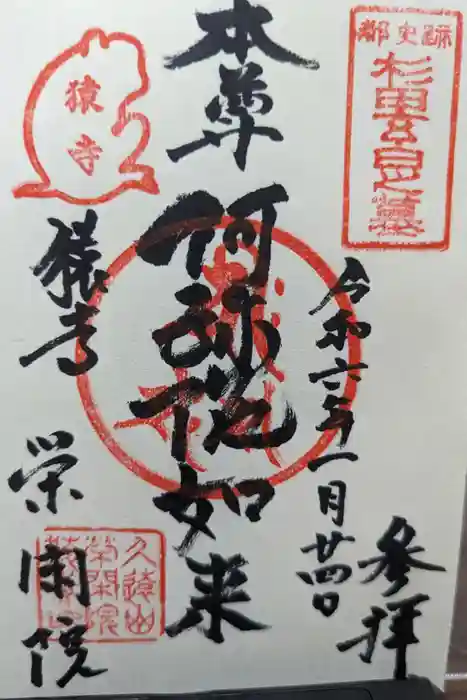 都史跡
杉田玄白之墓
参拝
令和六年一月廿四日
本尊
阿弥陀如来
猿寺
猿寺
栄閑院
久遠山
榮閑院